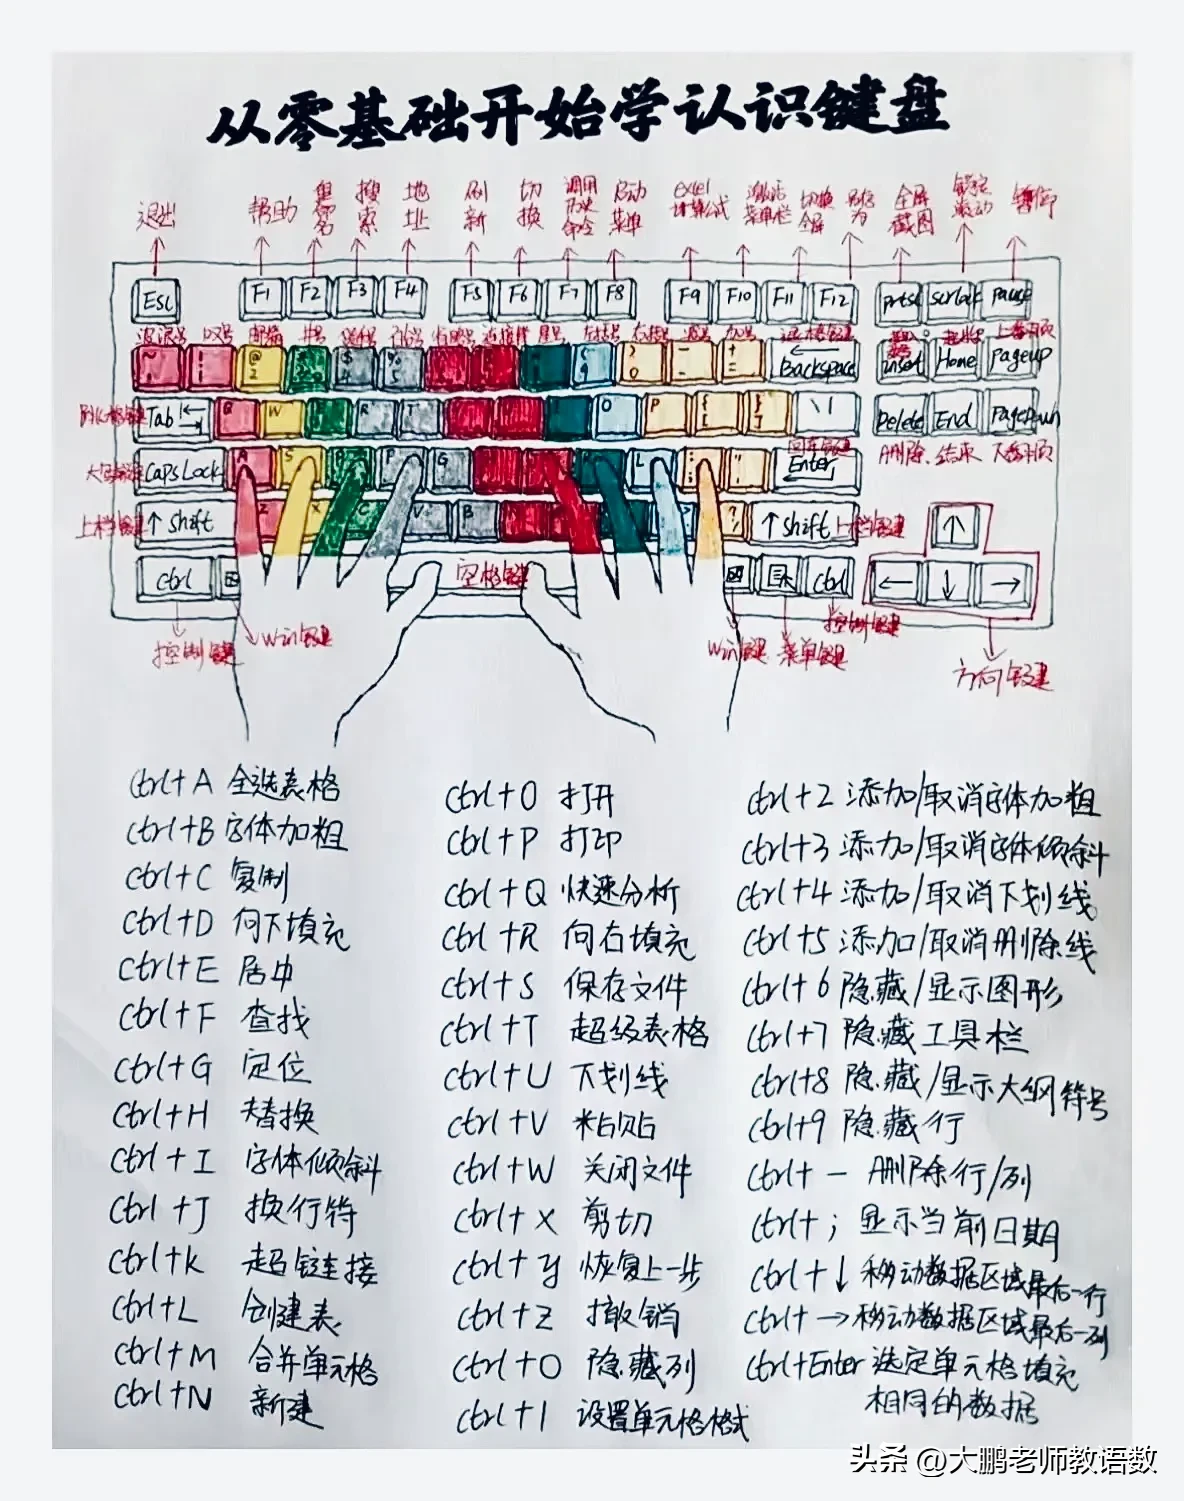 从零基础开始学认识键盘
退出 帮助 重命名 搜索 地址 刷新 切换 调用历史命令 启动菜单 excel计算公式 激活菜单栏 切换全屏 另存为 全屏截图 锁定滚动 暂停
Esc F1 F2 F3 F4 F5 F6 F7 F8 F9 F10 F11 F12 prtsc scrlock pause
波浪号 叹号 井号 连接符 星号 左括号 右括号 加号 退格键 上翻页
~ ! @ 2 $ 4 % 5 ( 9 ) 0 - + = Backspace insert Home Pageup
Tab Q W R T I O P { [ } ] \ | Delete End PageDown
回车键 删除 结束 下翻页
Caps Lock A S F G L : ; " Enter
上档键 ↑ shift Z X C V B ? / ↑ shift 上档键 ↑
ctrl 空格键 ctrl ← ↓ →
控制键 win键 win键 菜单键 控制键 方向键
ctrl+A 全选表格
ctrl+B 字体加粗
ctrl+C 复制
ctrl+D 向下填充
ctrl+E 居中
ctrl+F 查找
ctrl+G 定位
ctrl+H 替换
ctrl+I 字体倾斜
ctrl+J 换行符
ctrl+k 超链接
ctrl+L 创建表
ctrl+M 合并单元格
ctrl+N 新建
ctrl+O 打开
ctrl+P 打印
ctrl+Q 快速分析
ctrl+R 向右填充
ctrl+S 保存文件
ctrl+T 超级表格
ctrl+U 下划线
ctrl+V 粘贴
ctrl+W 关闭文件
ctrl+x 剪切
ctrl+y 恢复上一步
ctrl+z 撤销
ctrl+0 隐藏列
ctrl+1 设置单元格格式
ctrl+2 添加/取消字体加粗
ctrl+3 添加/取消字体倾斜
ctrl+4 添加/取消下划线
ctrl+5 添加/取消删除线
ctrl+6 隐藏/显示图形
ctrl+7 隐藏工具栏
ctrl+8 隐藏/显示大纲符号
ctrl+9 隐藏行
ctrl+ - 删除行/列
ctrl+ ; 显示当前日期
ctrl+↓ 移动数据区域最后一行
ctrl+→移动数据区域最后一列
ctrl+Enter 选定单元格填充
相同的数据
头条 @大鹏老师教语数